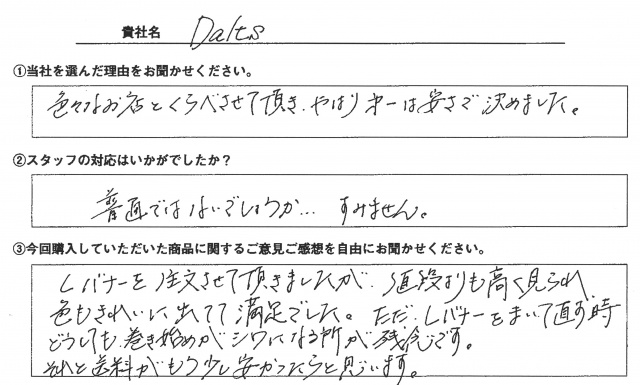 貴社名 Dalts
①当社を選んだ理由をお聞かせください。
色々なお店とくらべさせて頂き、やはり才一は安さで決めました。
②スタッフの対応はいかがでしたか？
普通ではないでしょうか… すみません。
③今回購入していただいた商品に関するご意見ご感想を自由にお聞かせください。
Lバナーを注文させて頂きましたが、値段よりも高く見られ
色もきれいに出てて満足でした。ただ、Lバナーをまいて直す時
どうしても、巻き始めがシワになる所が残念です。
それと送料がもう少し安かったらと思います。